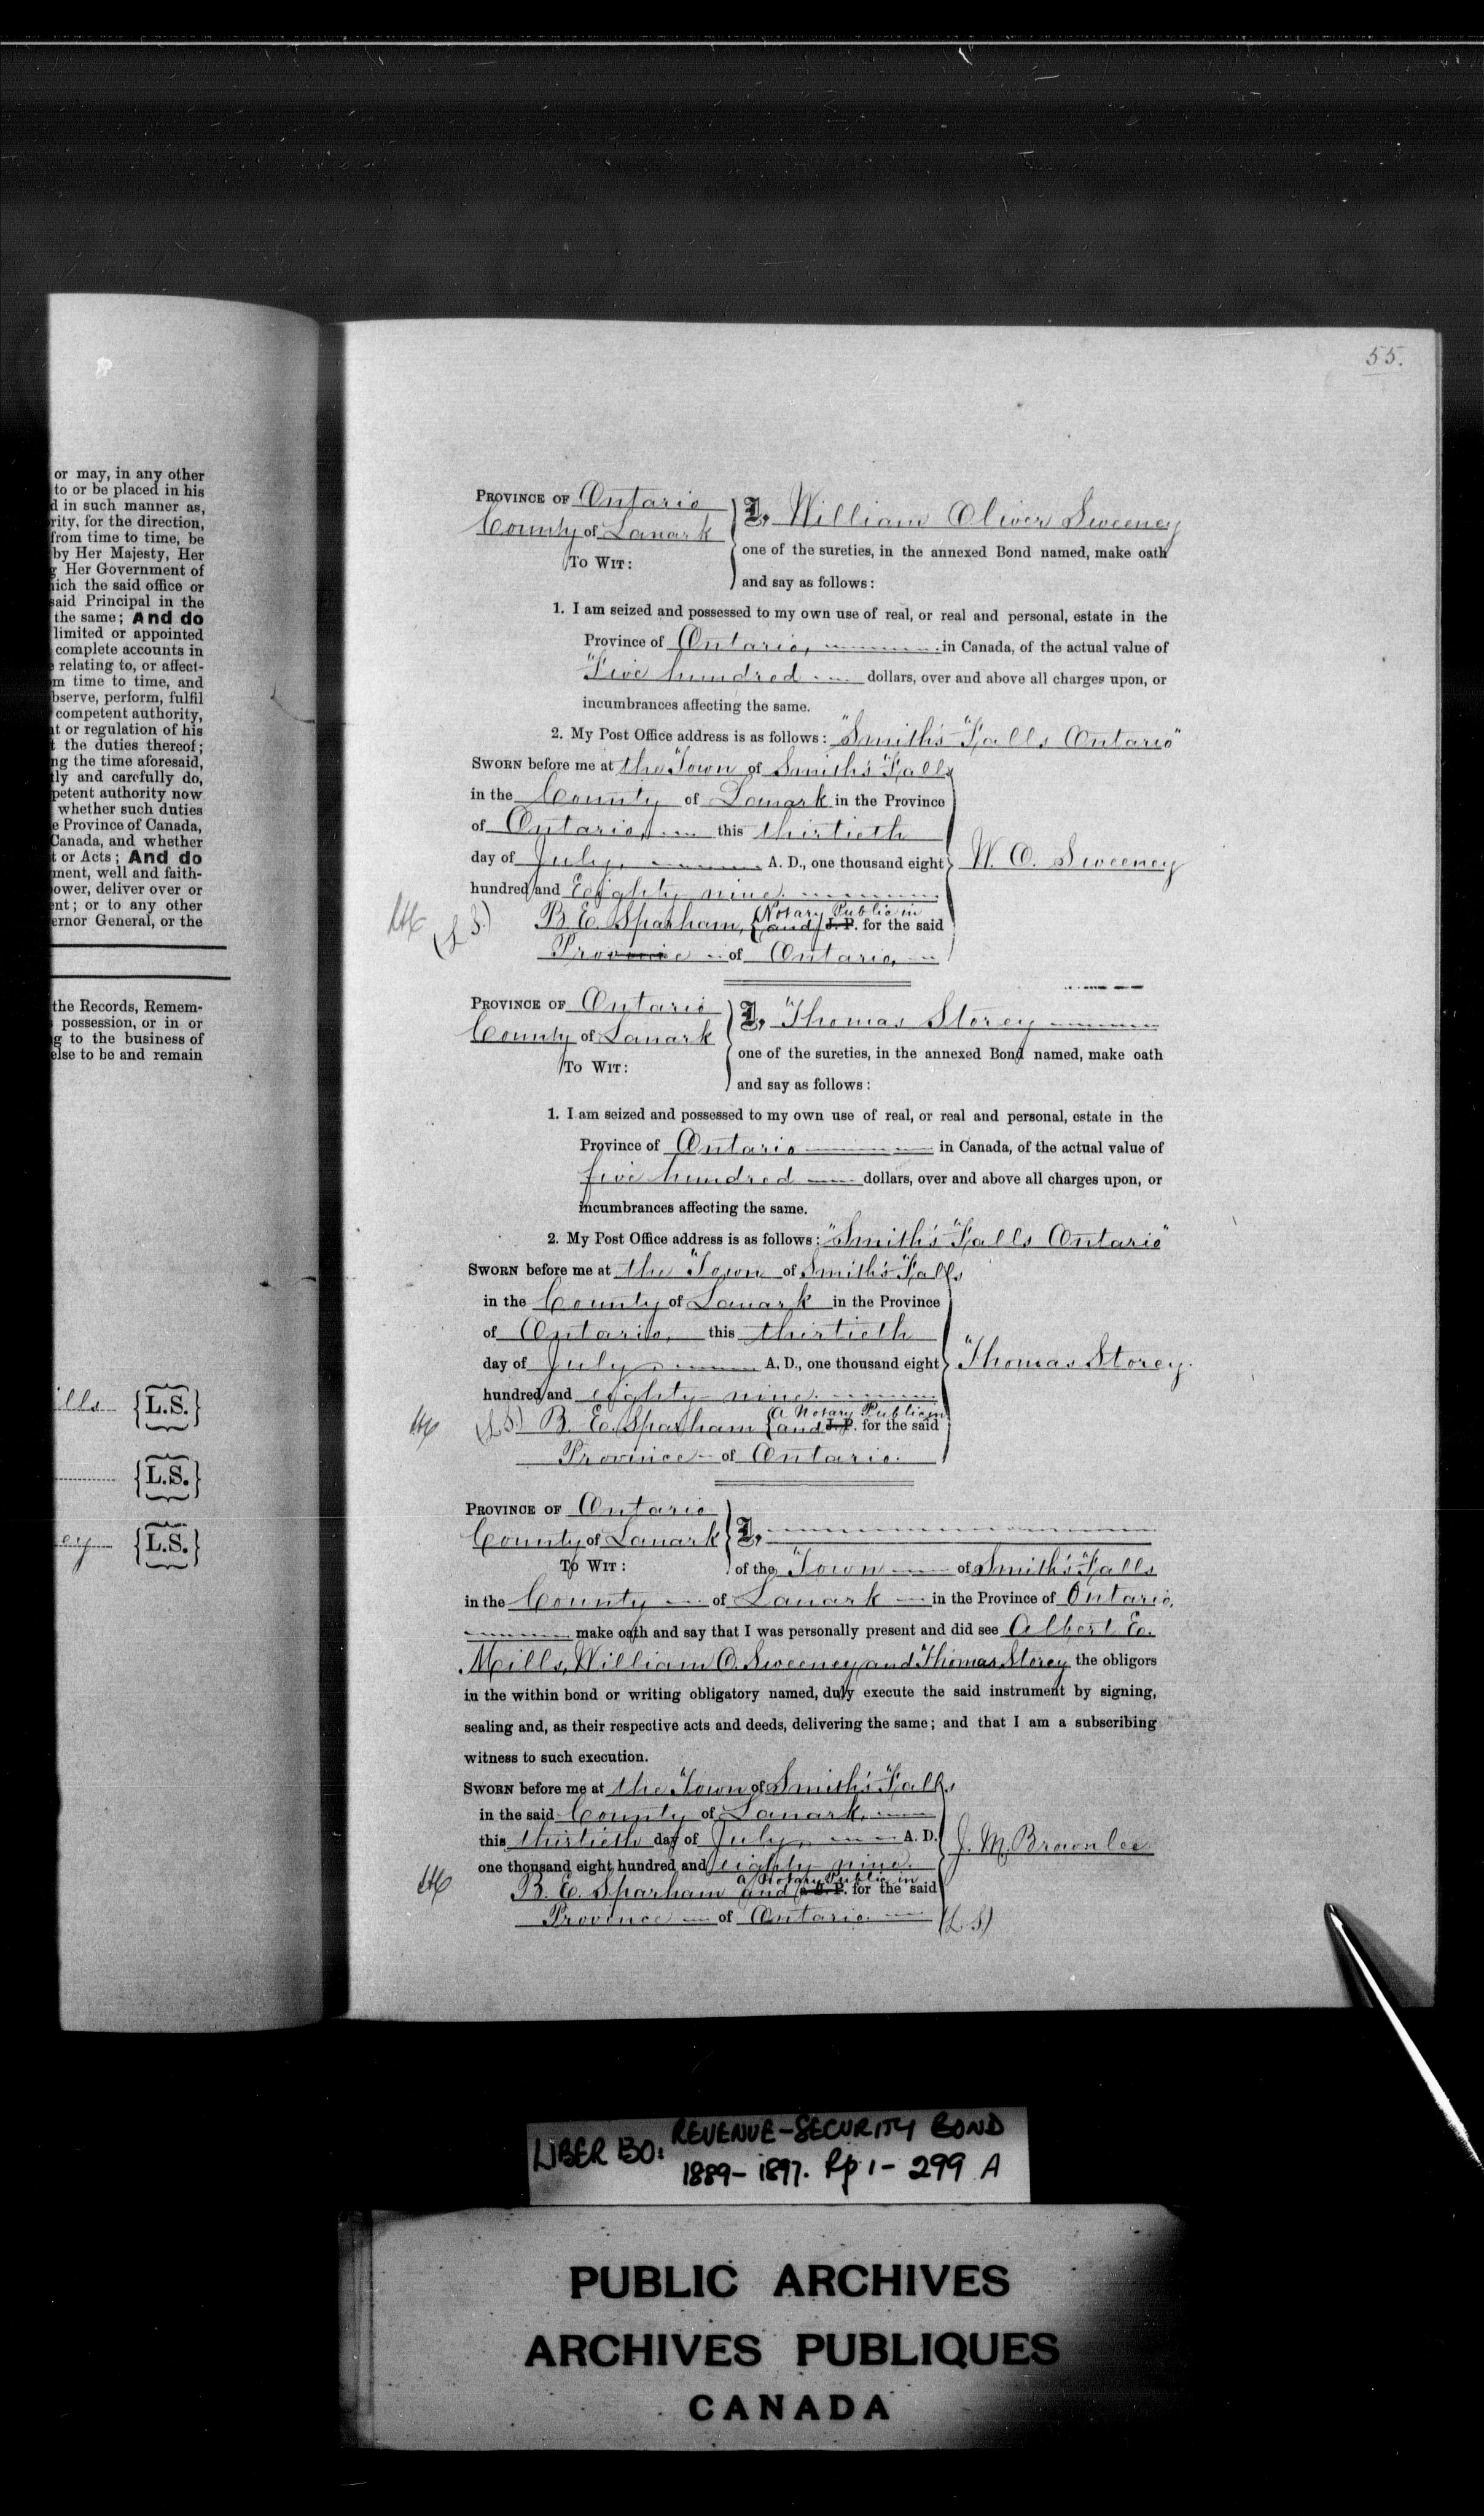 or may, in any other
to or be placed in his
d in such manner as,
rity, for the direction,
from time to time, be
by Her Majesty, Her
g Her Government of
hich the said office or
said Principal in the
the same; And do
limited or appointed
complete accounts in
relating to, or affect-
m time to time, and
bserve, perform, fulfil
competent authority,
nt or regulation of his
t the duties thereof;
ng the time aforesaid,
tly and carefully do,
petent authority now
whether such duties
e Province of Canada,
Canada, and whether
t or Acts; And do
ment, well and faith-
ower, deliver over or
ent; or to any other
ernor General, or the
the Records, Remem-
possession, or in or
g to the business of
else to be and remain
ills {L.S.}
{L.S.}
ey {L.S.}
55.
PROVINCE OF Ontario
County of Lanark
TO WIT:
I, William Oliver Sweeney
one of the sureties, in the annexed Bond named, make oath
and say as follows:
1. I am seized and possessed to my own use of real, or real and personal, estate in the
Province of Ontario, in Canada, of the actual value of
Five hundred dollars, over and above all charges upon, or
incumbrances affecting the same.
2. My Post Office address is as follows: Smith's Falls Ontario
SWORN before me at the Town of Smith's Falls
in the County of Lanark in the Province
of Ontario, this thirtieth
day of July, A. D., one thousand eight
hundred and Eighty nine.
W. O. Sweeney
(L.S.) B. E. Sparham, (Notary Public in
and J. P. for the said
Province of Ontario,
PROVINCE OF Ontario
County of Lanark
TO WIT:
I, Thomas Storey
one of the sureties, in the annexed Bond named, make oath
and say as follows:
1. I am seized and possessed to my own use of real, or real and personal, estate in the
Province of Ontario in Canada, of the actual value of
five hundred dollars, over and above all charges upon, or
incumbrances affecting the same.
2. My Post Office address is as follows: Smith's Falls Ontario
SWORN before me at the Town of Smith's Falls
in the County of Lanark in the Province
of Ontario, this thirtieth
day of July, A. D., one thousand eight
hundred and eighty nine.
Thomas Storey.
(L.S.) B. E. Sparham (a Notary Public in
and J. P. for the said
Province of Ontario.
PROVINCE OF Ontario
County of Lanark
TO WIT:
I,
of the Town of Smith's Falls
in the County of Lanark in the Province of Ontario,
make oath and say that I was personally present and did see Albert E.
Mills, William O. Sweeney and Thomas Storey the obligors
in the within bond or writing obligatory named, duly execute the said instrument by signing,
sealing and, as their respective acts and deeds, delivering the same; and that I am a subscribing
witness to such execution.
SWORN before me at the Town of Smith's Falls
in the said County of Lanark,
this thirtieth day of July, A. D.
one thousand eight hundred and eighty nine.
J. M. Brownlee
a Notary Public in
B. E. Sparham and a J. P. for the said
Province of Ontario. (L.S)
LIBER 130: REVENUE-SECURITY BOND
1889-1897. Pp 1-299 A
PUBLIC ARCHIVES
ARCHIVES PUBLIQUES
CANADA